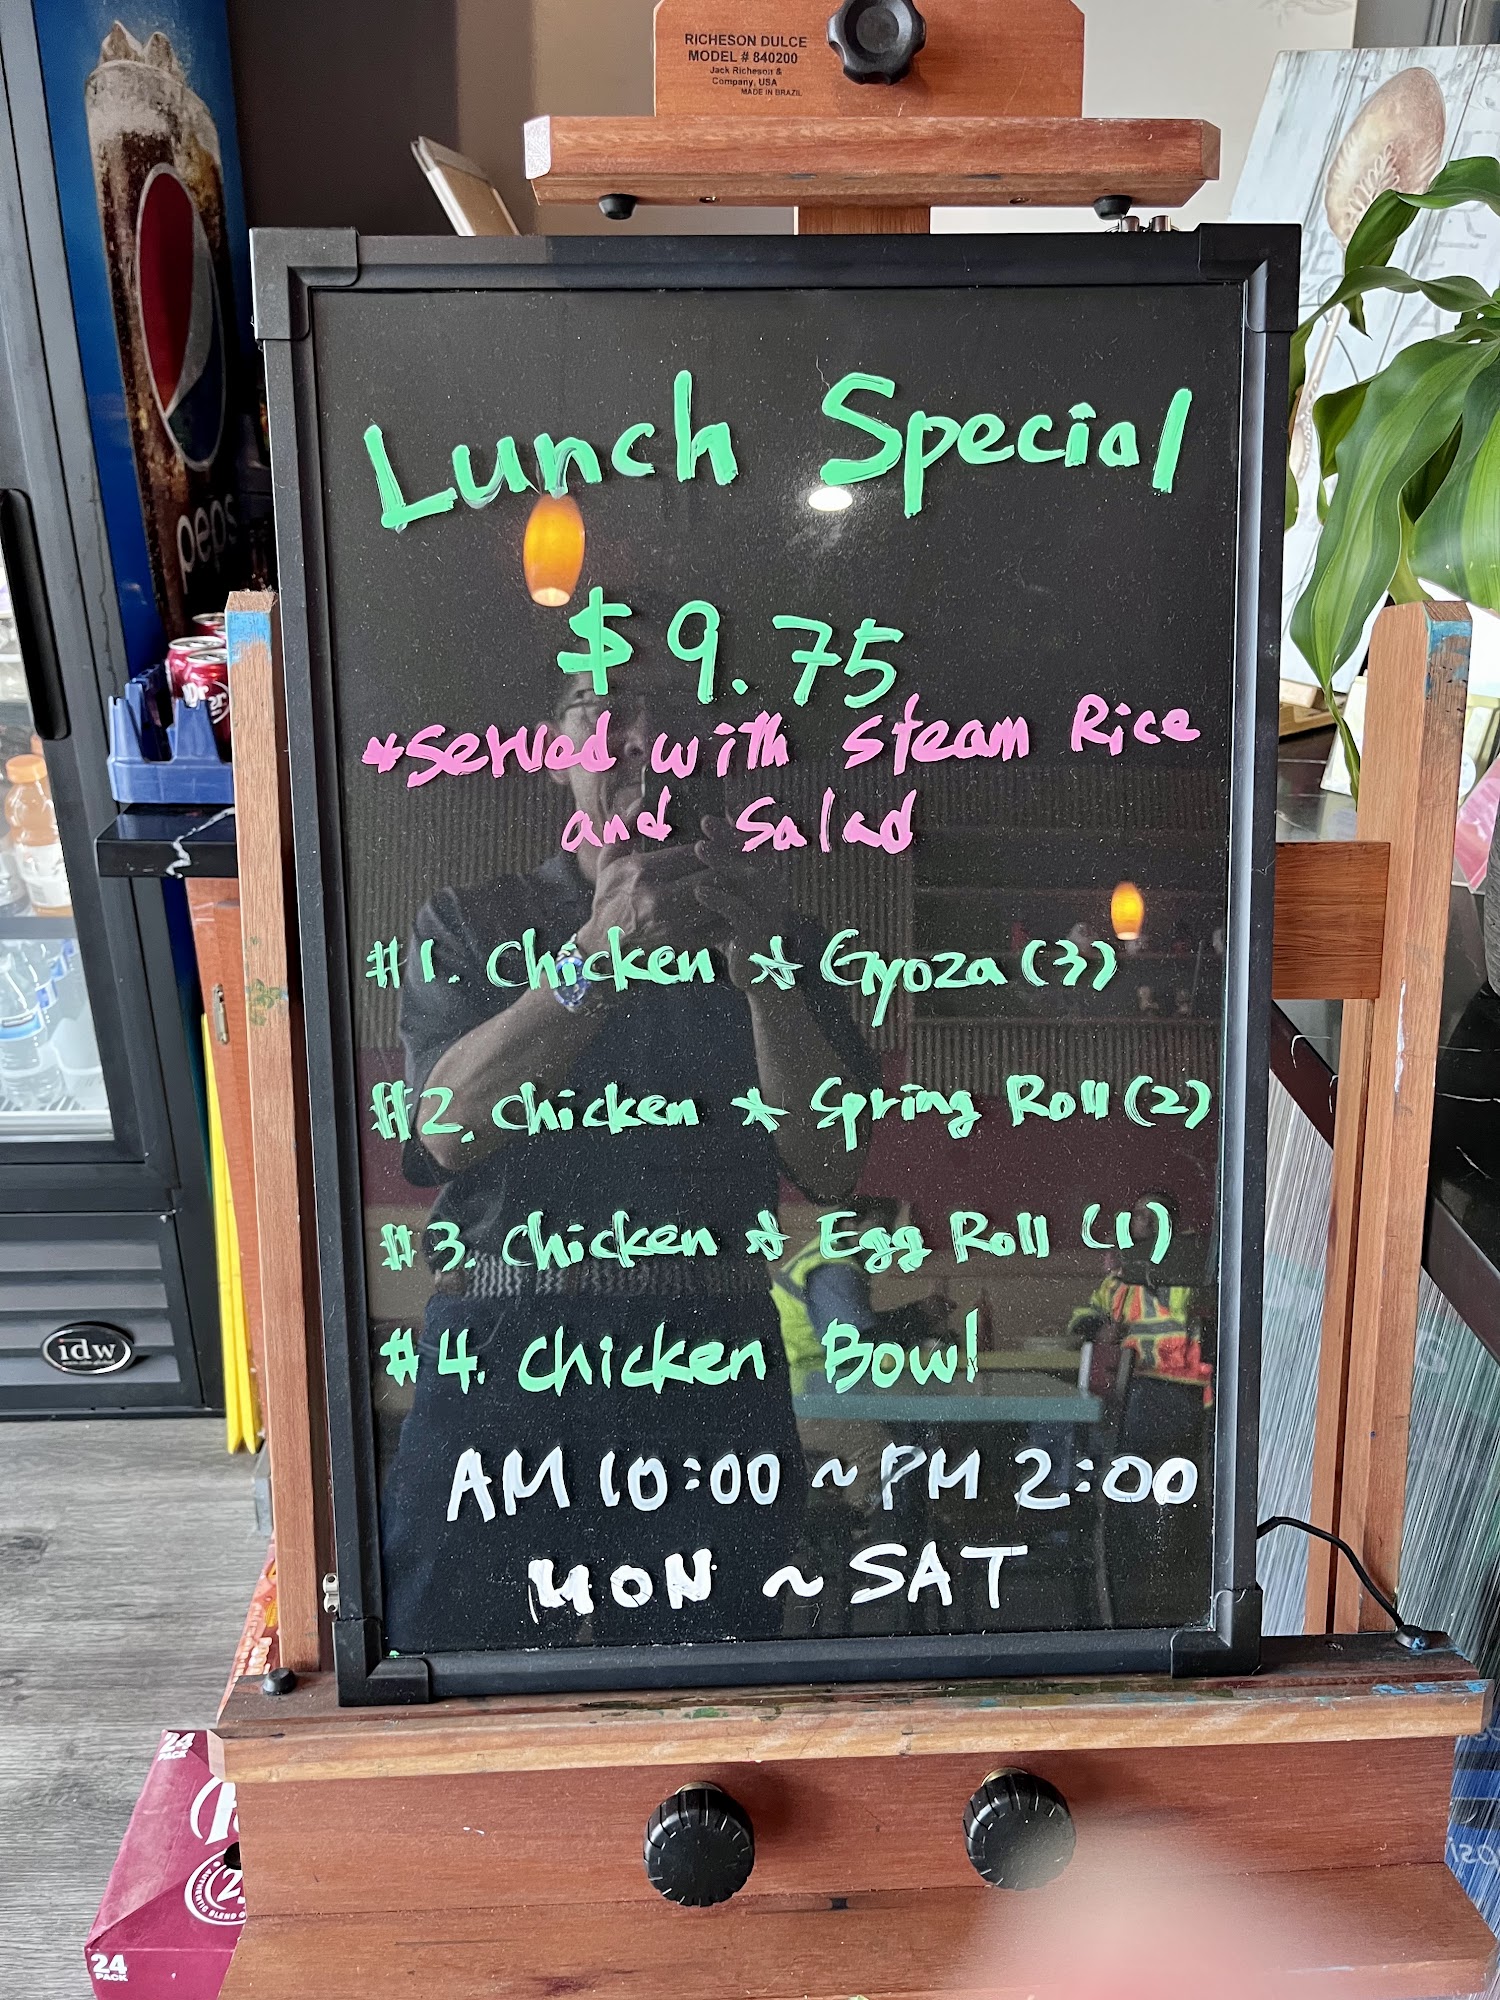 RICHESON DULCE
MODEL # 840200
Jack Richeson &
Company, USA
MADE IN BRAZIL
pepsi
Dr
Lunch Special
$9.75
*Served with Steam Rice
and Salad
#1. Chicken * Gyoza (3)
#2. Chicken * Spring Roll (2)
#3. Chicken * Egg Roll (1)
#4. Chicken Bowl
AM 10:00 ~ PM 2:00
MON ~ SAT
idw
24
PACK
24
PACK